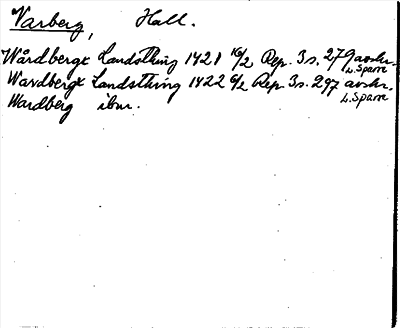 Varberg, Hall.
Wårdbergx Landsthing 1421 16/2 Rep. 3 s. 279 avskr. L. Sparre
Wardbergx Landsthing 1422 6/2 Rep. 3 s. 297 avskr. L. Sparre
Wardberg ibm.